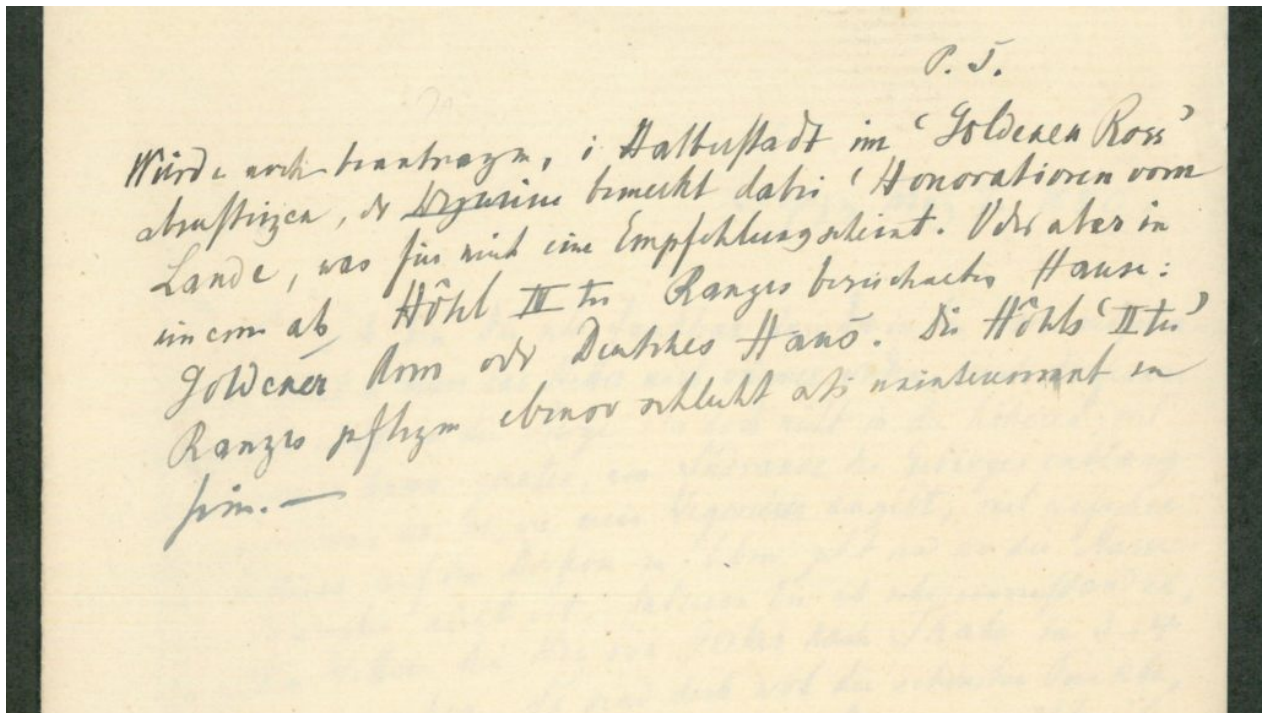 P. S.
Würde noch beantragen, i Halberstadt im 'Goldenen Ross'
abzusteigen, der Wegweiser bemerkt dabei 'Honoratioren vom
Lande, was für mich eine Empfehlung scheint. Oder aber in
einem als Hôtel III tes Ranges bezeichneten Hause:
Goldener oder Deutsches Haus. Die Hôtels 'II tes'
Ranges pflegen ebenso schlecht als uninteressant zu
sein. —